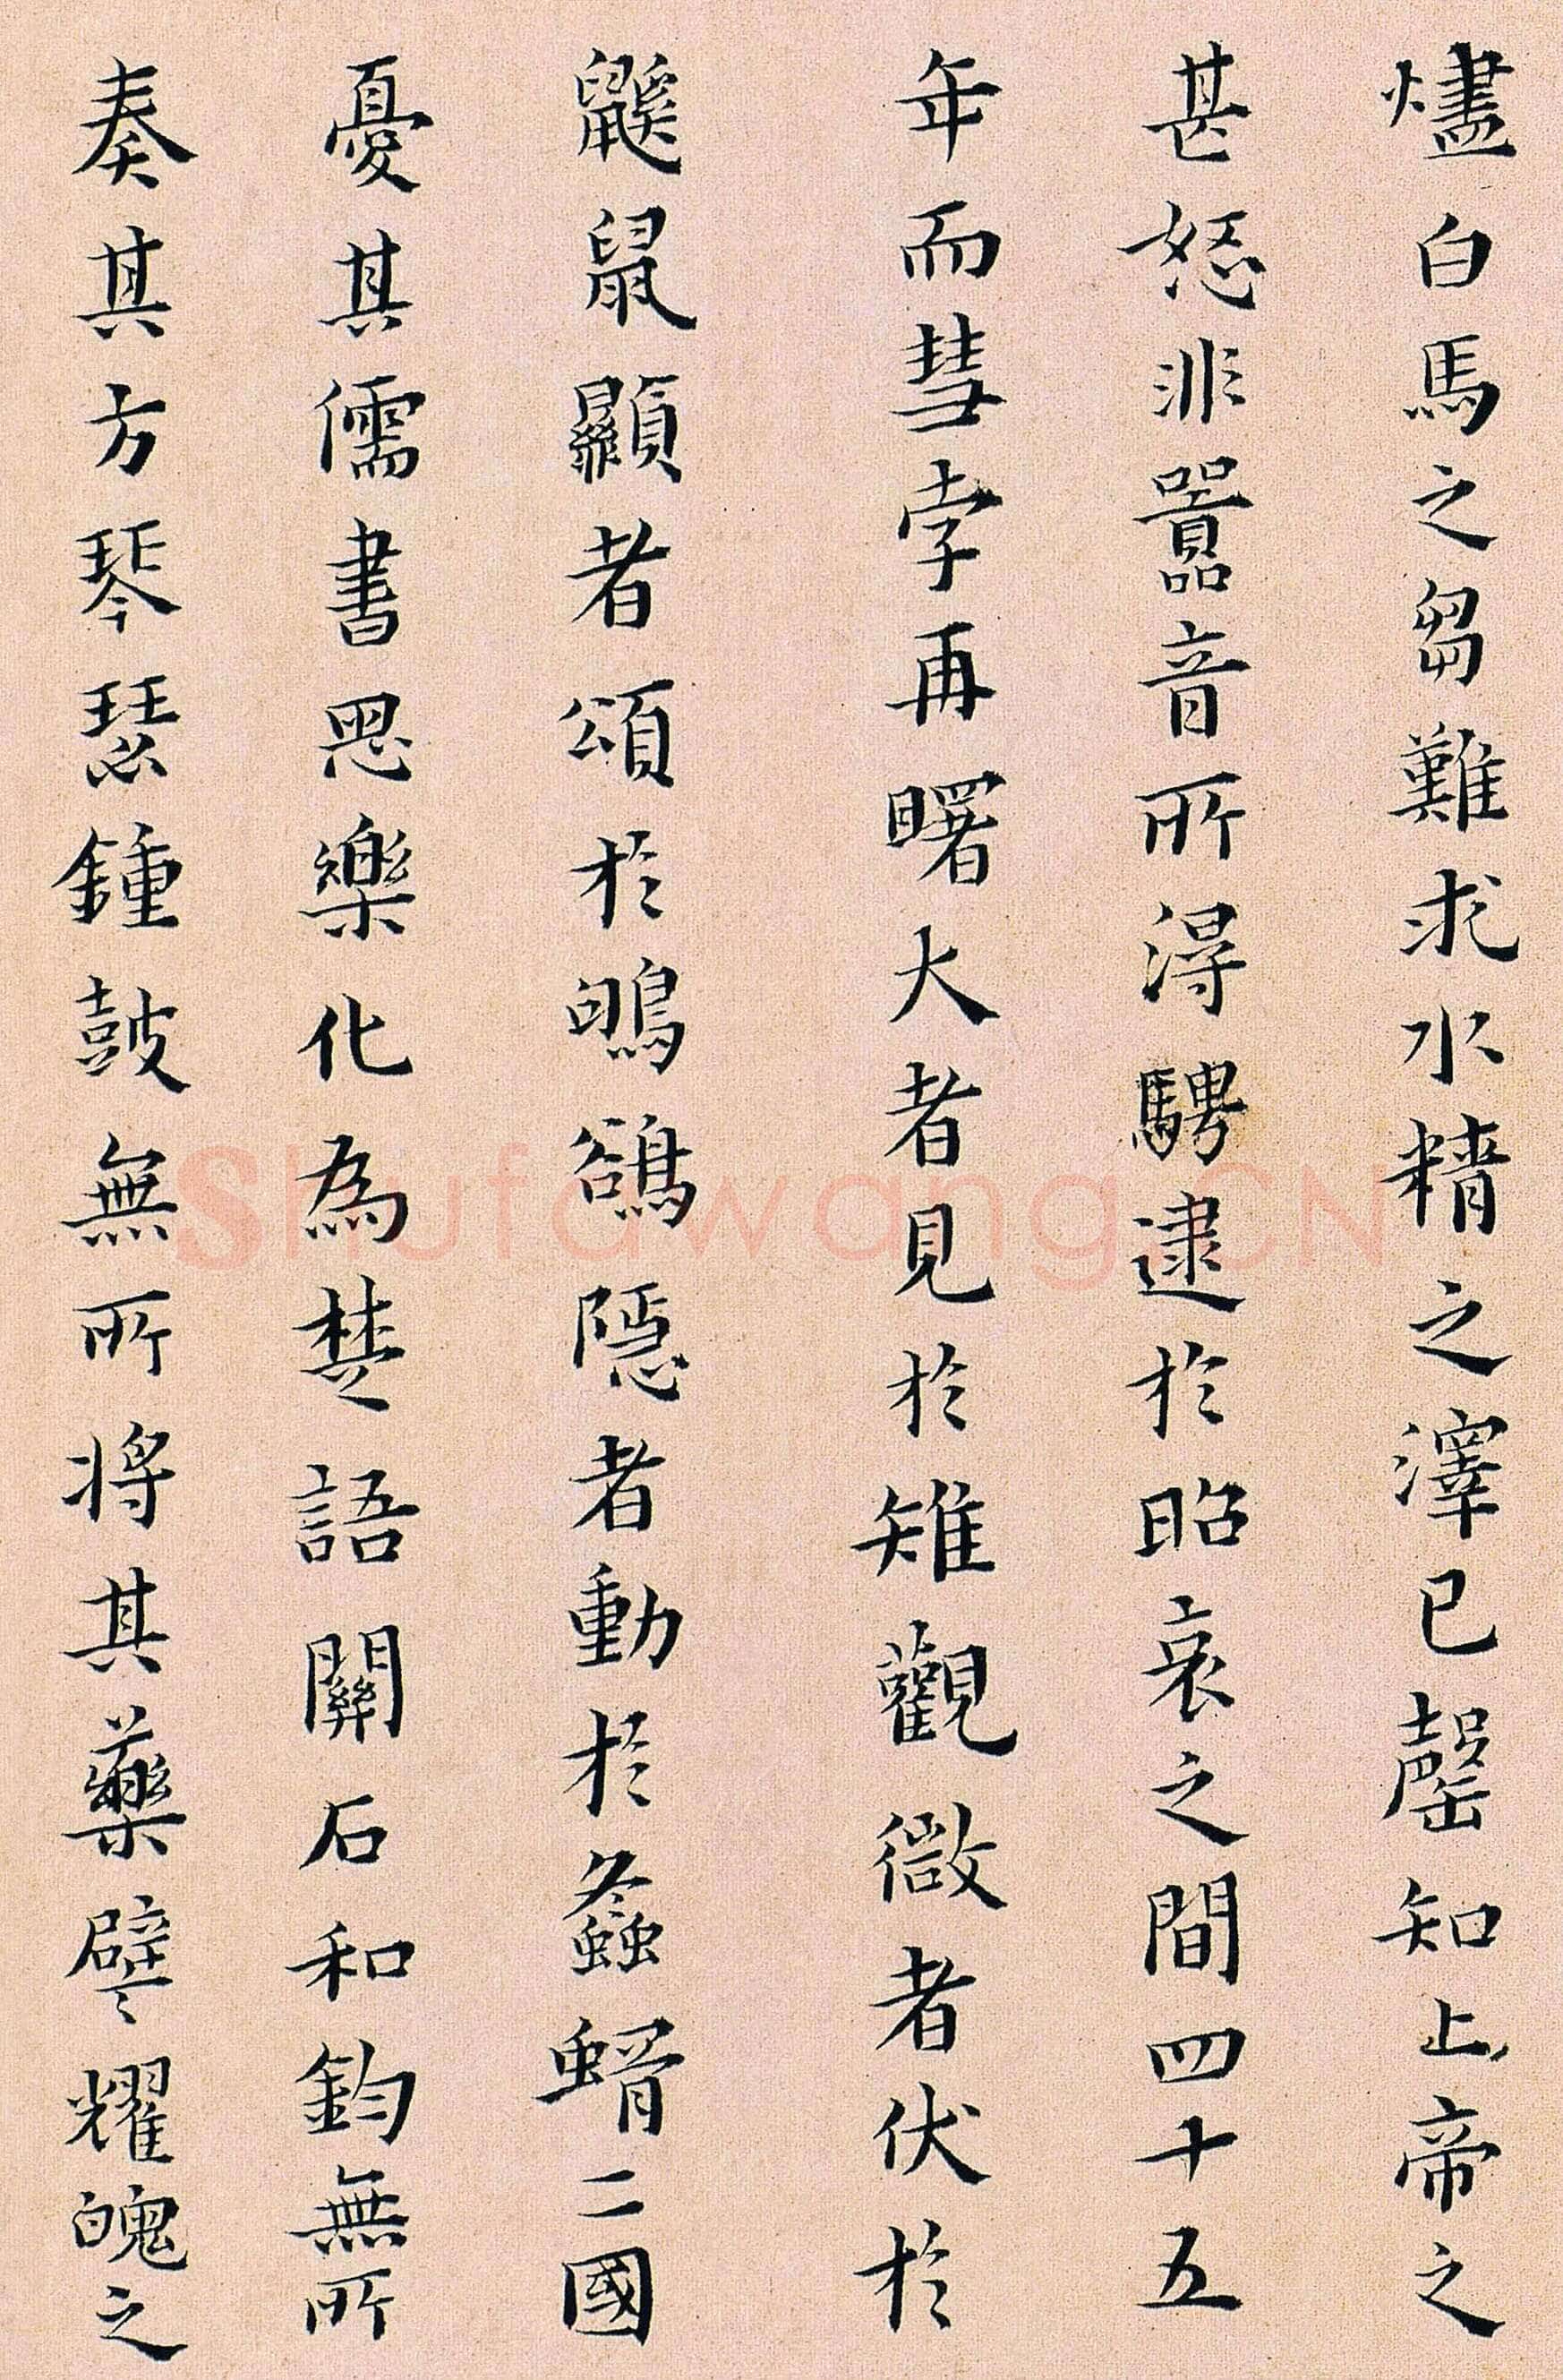 燼白馬之芻難求水精之澤已罄知上帝之
甚怒非嚚音所得騁逮於昭哀之間四十五
年而彗孛再曙大者見於雉觀微者伏於
鼷鼠顯者頌於鴝鵒隱者動於螽蝑二國
憂其儒書思樂化為楚語關石和鈞無所
奏其方琴瑟鍾鼓無所將其藥譬耀魄之
Shufawang.CN